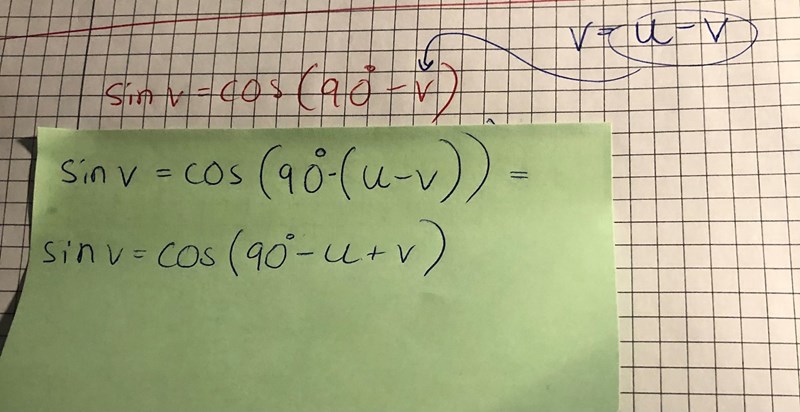 v = u - v
sin v = cos (90° - v)
sin v = cos (90° - (u - v)) =
sin v = cos (90° - u + v)